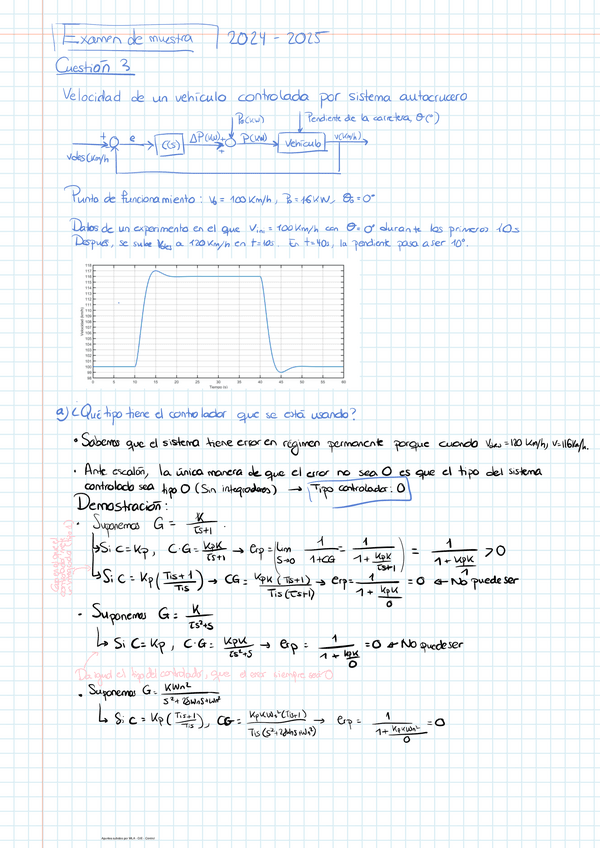 Examen de muestra 2024 - 2025
Cuestión 3
Velocidad de un vehículo controlada por sistema autocrucero
P₀(kW) Pendiente de la carretera, θ(°)
+ e C(s) ΔP(kW) + P(kW) Vehículo v(km/h)
Vdes(km/h +
Punto de funcionamiento: V₀ = 100 km/h, P₀ = 16 kW, θ₀ = 0°
Datos de un experimento en el que Vini = 100 km/h con θ = 0° durante los primeros 10s
Después, se sube Vdes a 120 km/h en t=10s. En t=40s, la pendiente pasa a ser 10°.
118
117
116
115
114
113
112
111
110
109
108
107
106
105
104
103
102
101
100
99
98
Velocidad (km/h)
0 5 10 15 20 25 30 35 40 45 50 55 60
Tiempo (s)
a) ¿Qué tipo tiene el controlador que se está usando?
• Sabemos que el sistema tiene error en régimen permanente porque cuando Vdes = 120 km/h, V=116km/h.
• Ante escalón, la única manera de que el error no sea 0 es que el tipo del sistema
controlado sea tipo 0 (Sin integradores) → Tipo controlador: 0
Demostración:
• Suponemos G = K/(τs+1).
↳ Si C = Kp, C·G = KpK/(τs+1) → erp = lim s→0 1/(1+CG) = 1/(1 + KpK/(τs+1)) = 1/(1 + KpK/1) > 0
↳ Si C = Kp(Tis+1/Tis) → CG = KpK(Tis+1)/Tis(τs+1) → erp = 1/(1 + KpK/0) = 0 ← No puede ser
• Suponemos G = K/(τs²+s)
↳ Si C = Kp, C·G = KpK/(τs²+s) → erp = 1/(1 + KpK/0) = 0 ← No puede ser
Da igual el tipo del controlador, que el error siempre será 0
• Suponemos G = KWn²/(s²+2δWns+Wn²)
↳ Si C = Kp(Tis+1/Tis), CG = KpKWn²(Tis+1)/Tis(s²+2δWns+Wn²) → erp = 1/(1 + KpKWn²/0) = 0